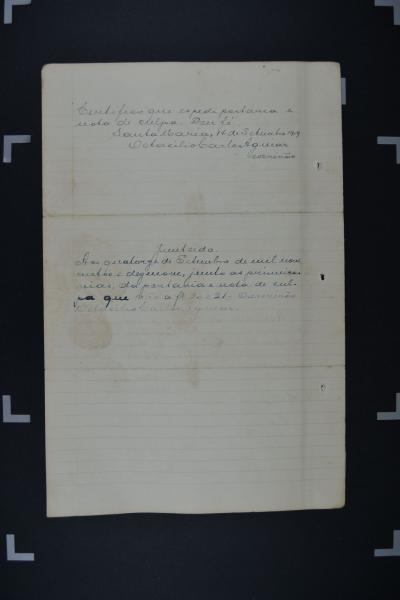 Certifico que expedi portaria e
nota de culpa. Dou fé.
Santa Maria, 14 de Setembro 1919
Octacilio Carlos Aguiar
Escrivão
Juntada.
Aos quatorze de Setembro de mil nove
centos e dezenove, junto as primeiras
vias, da portaria e nota de cul-
pa que
Escrivão
Octacilio Carlos Aguiar.